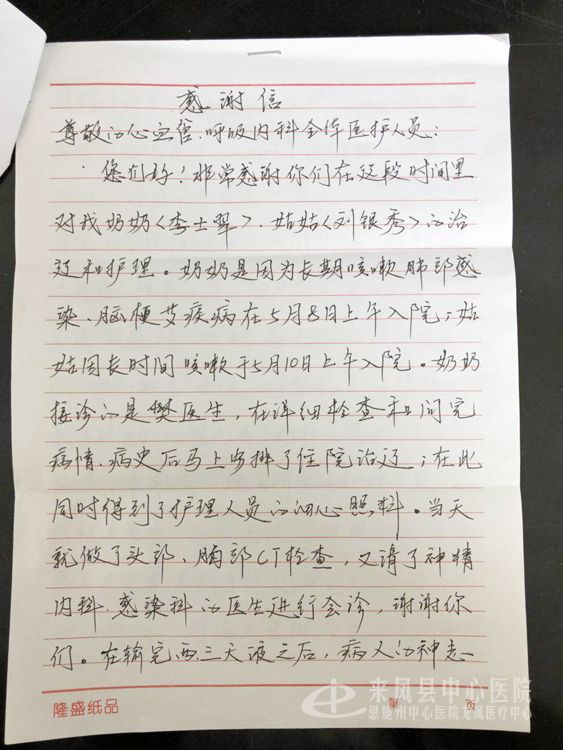 感谢信
尊敬的心血管.呼吸内科全体医护人员:
您们好!非常感谢你们在这段时间里
对我奶奶<李士翠>、姑姑<刘银秀>的治
疗和护理。奶奶是因为长期咳嗽肺部感
染、脑梗等疾病在5月8日上午入院;姑
姑因长时间咳嗽于5月10日上午入院。奶奶
接诊的是樊医生,在详细检查和问完
病情、病史后马上安排了住院治疗;在此
同时得到了护理人员的细心照料。当天
就做了头部、胸部CT检查,又请了神精
内科.感染科的医生进行会诊,谢谢你
们。在输完两.三天液之后,病人的神志
隆盛纸品
第 页
来凤县中心医院
恩施州中心医院龙凤医疗中心